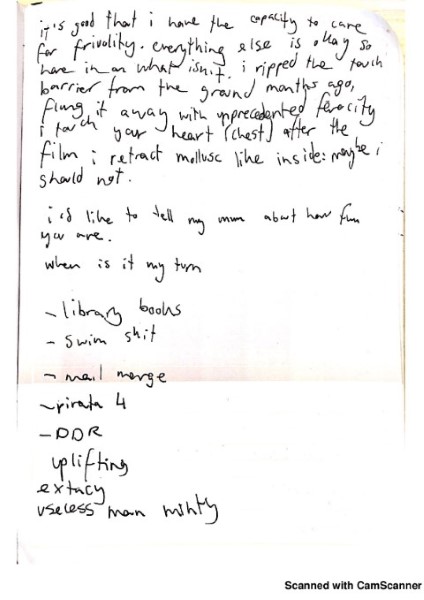 it's good that i have the capacity to care
for frivolity. everything else is okay so
hone in on what isnit. i ripped the touch
barrier from the ground months ago,
flung it away with unprecedented ferocity
i touch your heart (chest) after the
film i retract mollusc like inside: maybe i
should not.
i'd like to tell my mum about how fun
you are.
when is it my turn
- library books
- swim shit
- mail merge
- pirata 4
- DDR
uplifting
extacy
useless man
Scanned with CamScanner